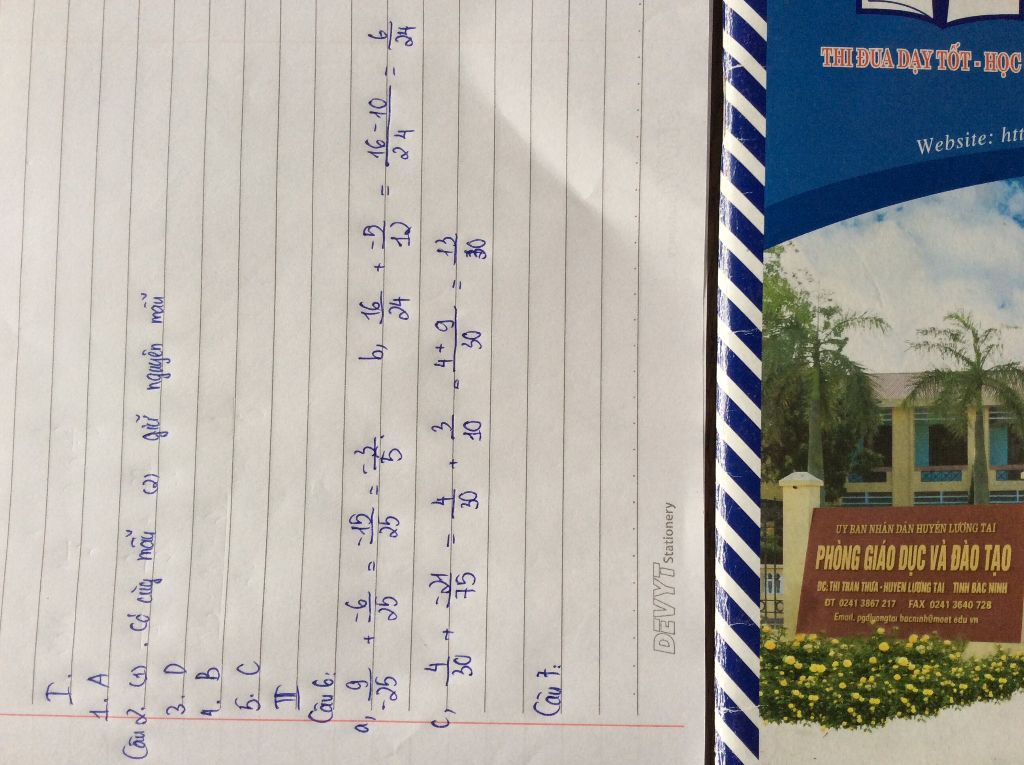 I.
1. A
Câu 2. (1). Có cùng mẫu (2) giữ nguyên mẫu
3. D
4. B
5. C
II
Câu 6:
a, 9/-25 + -6/25 = -15/25 = -3/5. b, 16/24 + -5/12 = 16-10/24 = 6/24
c, 4/30 + -21/75 = 4/30 + 3/10 = 4+9/30 = 13/30
Câu 7:
DEVYT Stationery
THI ĐUA DẠY TỐT - HỌC
Website: htt
UỶ BAN NHÂN DÂN HUYỆN LƯƠNG TÀI
PHÒNG GIÁO DỤC VÀ ĐÀO TẠO
ĐC: THỊ TRẤN THỨA - HUYỆN LƯƠNG TÀI TỈNH BẮC NINH
ĐT 0241 3867 217 FAX 0241 3640 728
Email. pgdluongtai.bacninh@moet.edu.vn